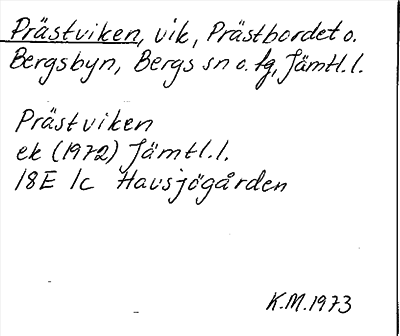 Prästviken, vik, Prästbordet o.
Bergsbyn, Bergs sn o. fg, Jämtl.l.
Prästviken
ek (1972) Jämtl.l.
18E 1c Havsjögården
K.M.1973